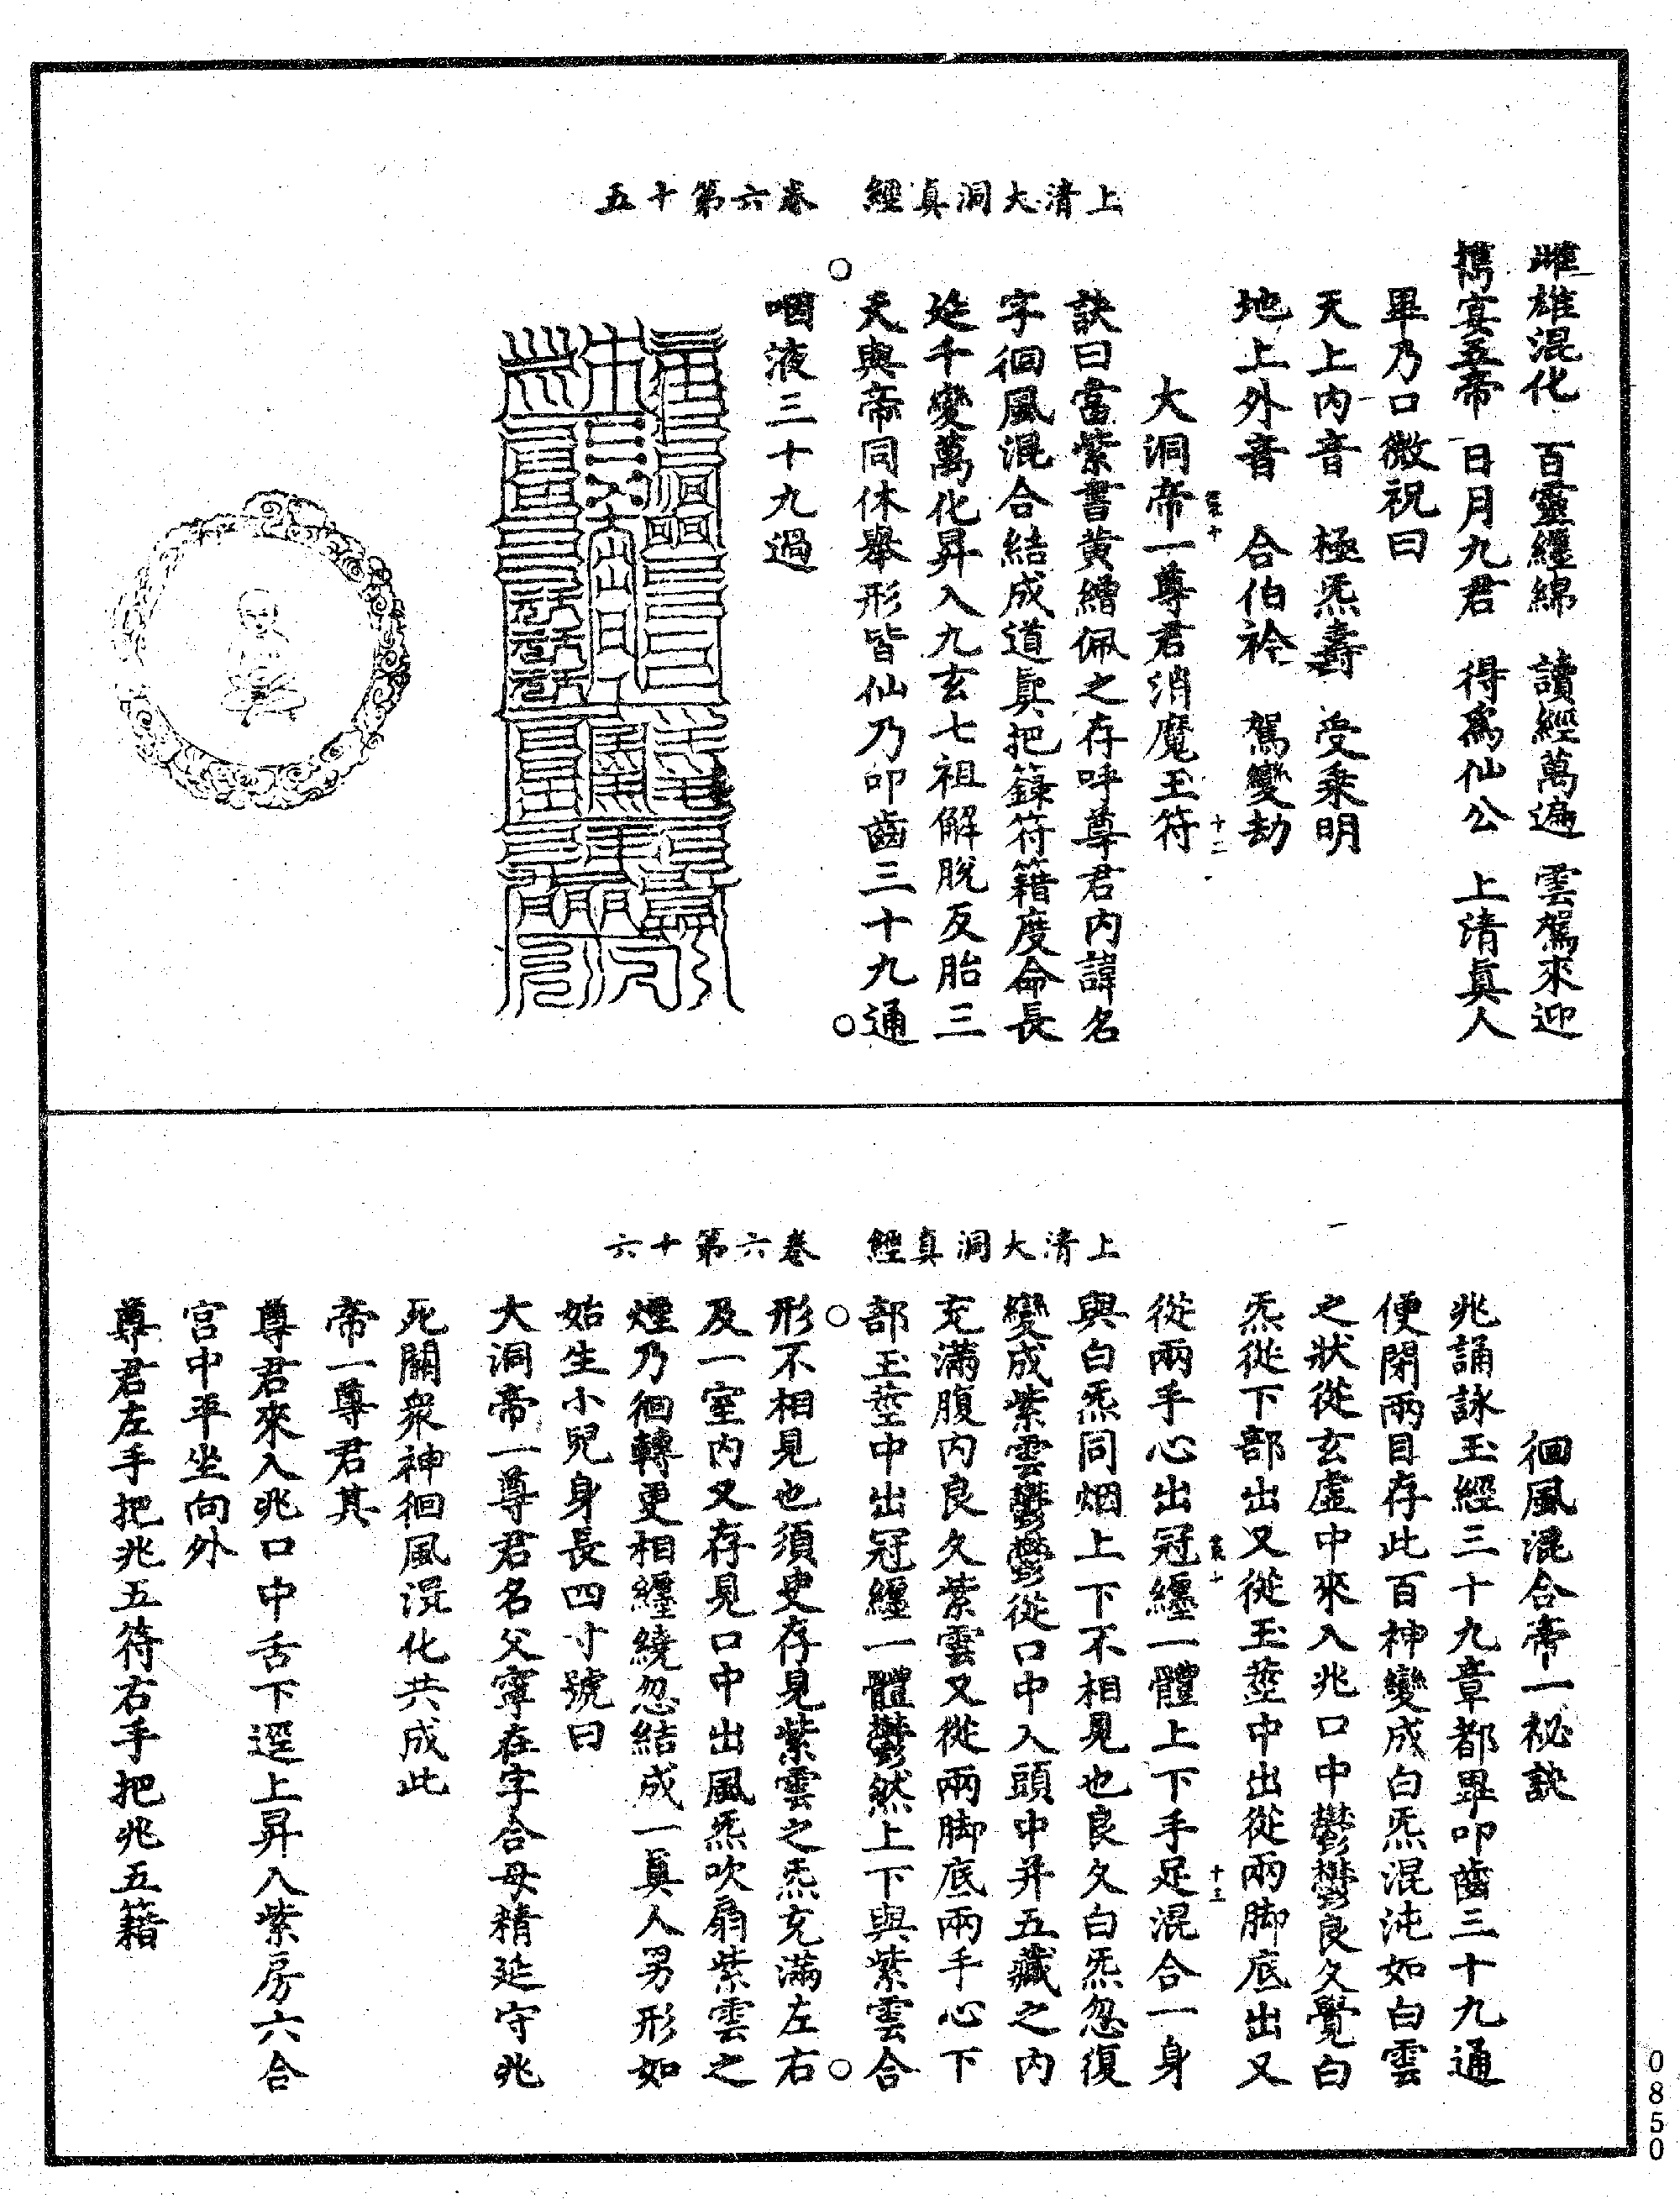 上清大洞真經　卷六第十五
雌雄混化　百靈纏綿　讀經萬遍　雲駕來迎
攜宴五帝　日月九君　得爲仙公　上清真人
畢乃口微祝曰
天上内音　極炁壽　受乘明
地上外音　合伯衿　駕變劫
大洞帝一尊君消魔王符
十二
訣曰當紫書黄繒佩之存呼尊君内諱名
字徊風混合結成道真把籙符籍度命長
延千變萬化昇入九玄七祖解脫反胎三
天與帝同休舉形皆仙乃叩齒三十九通
咽液三十九過
上清大洞真經　卷六第十六
徊風混合帝一祕訣
兆誦詠玉經三十九章都畢叩齒三十九通
便閉兩目存此百神變成白炁混沌如白雲
之狀從玄虛中來入兆口中鬱鬱良久覺白
炁從下部出又從玉莖中出從兩脚底出又
從兩手心出冠纏一體上下手足混合一身
十三
與白炁同烟上下不相見也良久白炁忽復
變成紫雲鬱鬱從口中入頭中并五藏之内
充滿腹内良久紫雲又從兩脚底兩手心下
部玉莖中出冠纏一體鬱然上下與紫雲合
形不相見也須臾存見紫雲之炁充滿左右
及一室内又存見口中出風炁吹扇紫雲之
煙乃徊轉更相纏繞忽結成一真人男形如
始生小兒身長四寸號曰
大洞帝一尊君名父寧在字合母精延守兆
死關衆神徊風混化共成此
帝一尊君其
尊君來入兆口中舌下逕上昇入紫房六合
宫中平坐向外
尊君左手把兆五符右手把兆五籍
0850